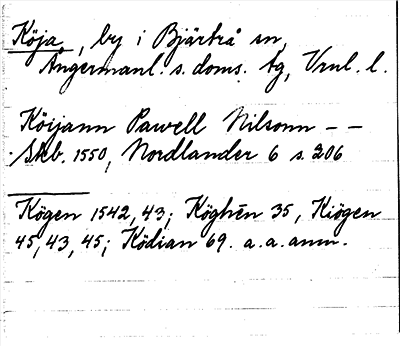 Köja, by i Bjärtrå sn,
Ångermanl. s. doms. tg, Vrnl. l.
Köijann Pawell Nilsonn – –
Skb. 1550, Nordlander 6 s. 206
Kögen 1542, 43; Köghēn 35, Kiögen
45, 43, 45; Ködian 69. a. a. anm.